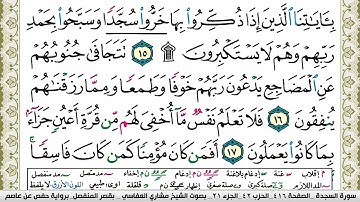 بِـَٔايَٰتِنَا ٱلَّذِينَ إِذَا ذُكِّرُوا۟ بِهَا خَرُّوا۟ سُجَّدًا وَسَبَّحُوا۟ بِحَمْدِ
رَبِّهِمْ وَهُمْ لَا يَسْتَكْبِرُونَ ۩ ١٥ تَتَجَافَىٰ جُنُوبُهُمْ
عَنِ ٱلْمَضَاجِعِ يَدْعُونَ رَبَّهُمْ خَوْفًا وَطَمَعًا وَمِمَّا رَزَقْنَٰهُمْ
يُنفِقُونَ ١٦ فَلَا تَعْلَمُ نَفْسٌ مَّآ أُخْفِىَ لَهُم مِّن قُرَّةِ أَعْيُنٍ جَزَآءًۢ
بِمَا كَانُوا۟ يَعْمَلُونَ ١٧ أَفَمَن كَانَ مُؤْمِنًا كَمَن كَانَ فَاسِقًا ۚ
سورة السجدة . الصفحة ٤١٦ الحزب ٤٢ الجزء ٢١ . بصوت الشيخ مشاري العفاسي . بقصر المنفصل . برواية حفص عن عاصم